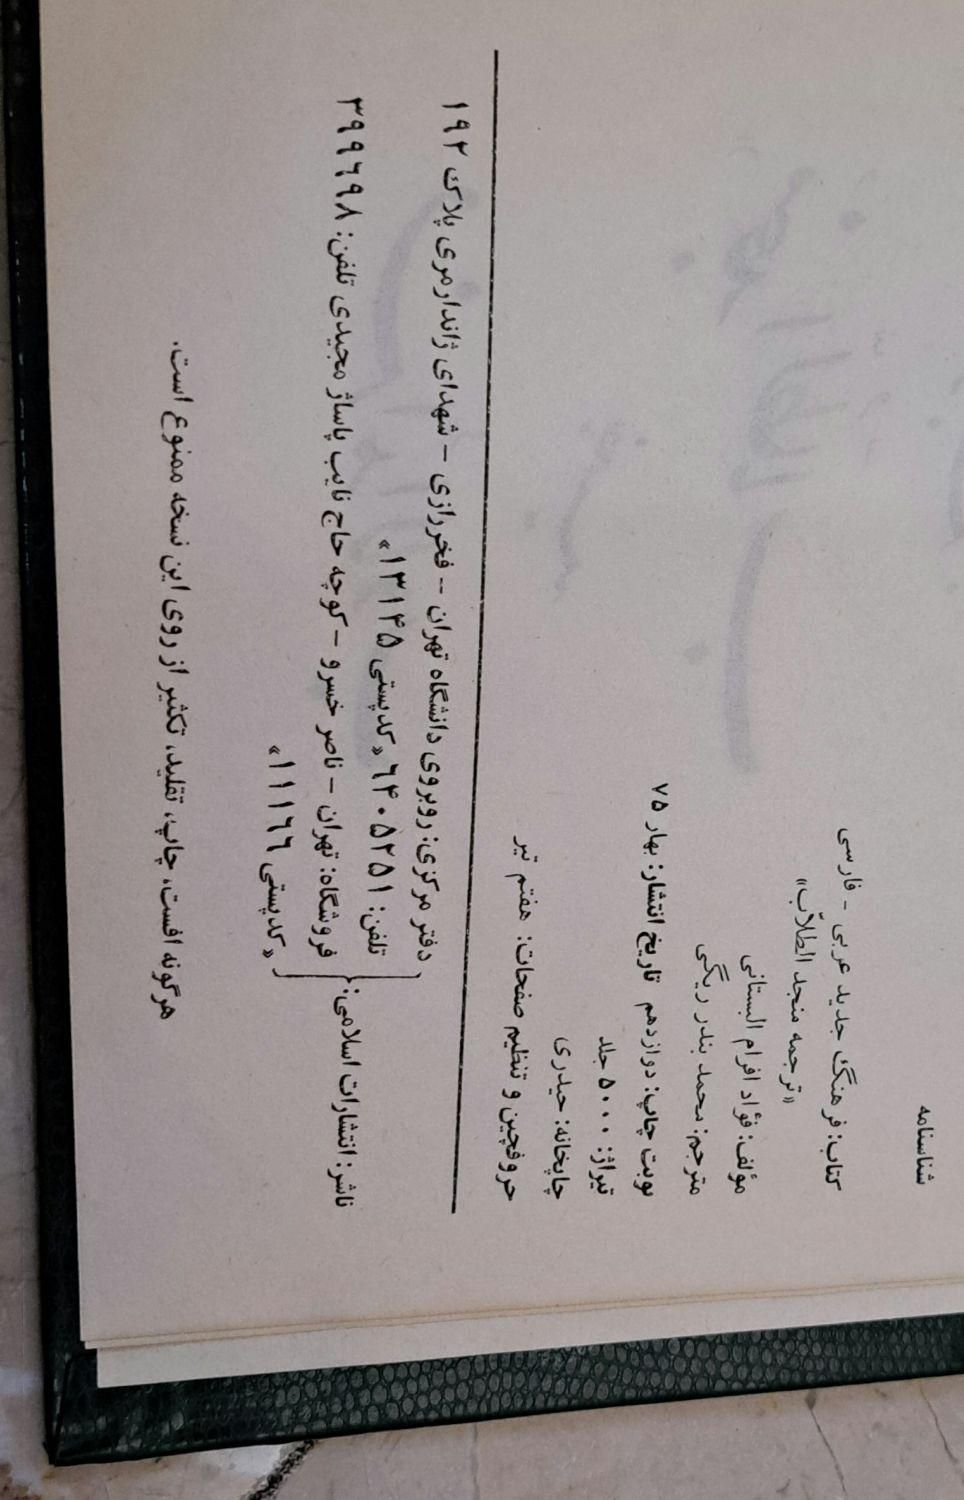 شناسنامه
کتاب: فرهنگ جدید عربی - فارسی
«ترجمه منجد الطلاّب»
مؤلف: فؤاد افرام البستانی
مترجم: محمد بندر ریگی
نوبت چاپ: دوازدهم تاریخ انتشار: بهار ۷۵
تیراژ: ۵۰۰۰ جلد
چاپخانه: حیدری
حروفچین و تنظیم صفحات: هفتم تیر
دفتر مرکزی: روبروی دانشگاه تهران - فخررازی - شهدای ژاندارمری پلاک ۱۹۲
تلفن: ۶۴۰۵۲۵۱ «کدپستی ۱۳۱۴۵»
ناشر: انتشارات اسلامی:
فروشگاه: تهران - ناصر خسرو - کوچه حاج نایب پاساژ مجیدی تلفن: ۳۹۹۶۹۸
«کدپستی ۱۱۱۶۶»
هرگونه افست، چاپ، تقلید، تکثیر از روی این نسخه ممنوع است.